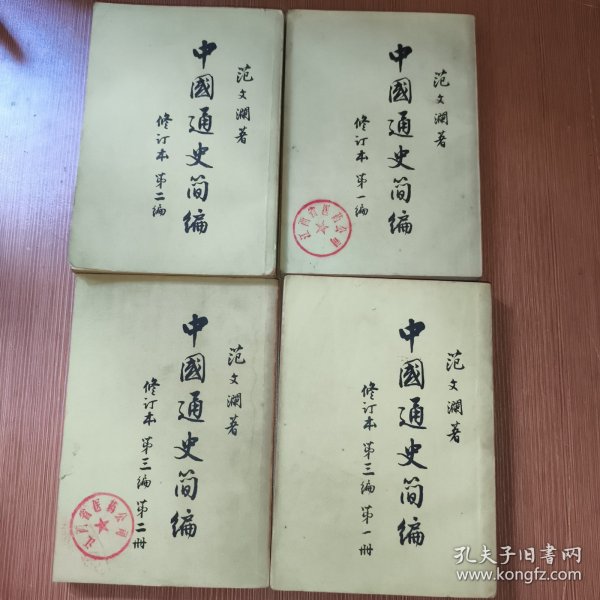 范文澜著
中國通史简编
修订本 第二编
范文澜著
中國通史简编
修订本 第一编
江西省医药公司
范文澜著
中國通史简编
修订本 第三编 第二册
江西省医药公司
范文澜著
中國通史简编
修订本 第三编 第一册
孔夫子旧书网
www.kongfz.com